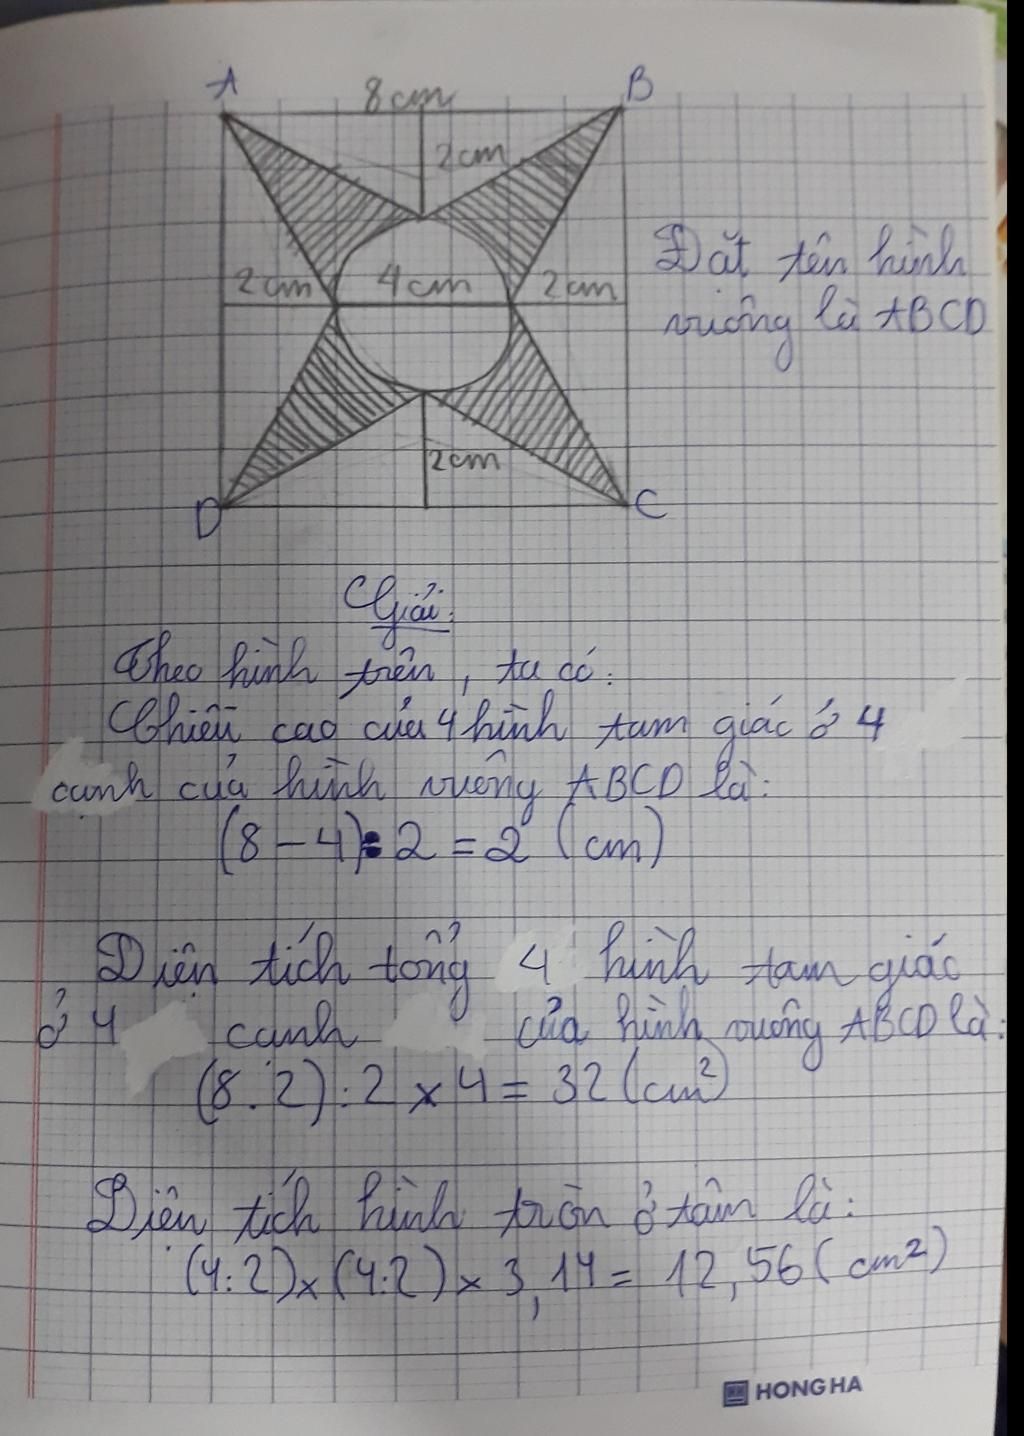 A
8cm
B
2cm
2cm
4cm
2cm
Đặt tên hình
vuông là ABCD
2cm
D
C
Giải:
Theo hình trên, ta có:
Chiều cao của 4 hình tam giác ở 4
cạnh của hình vuông ABCD là:
(8-4):2=2 (cm)
Diện tích tổng 4 hình tam giác
ở 4 cạnh của hình vuông ABCD là:
(8.2):2 x 4 = 32 (cm²)
Diện tích hình tròn ở tâm là:
(4:2)x(4:2) x 3,14 = 12,56 (cm²)
HONG HA